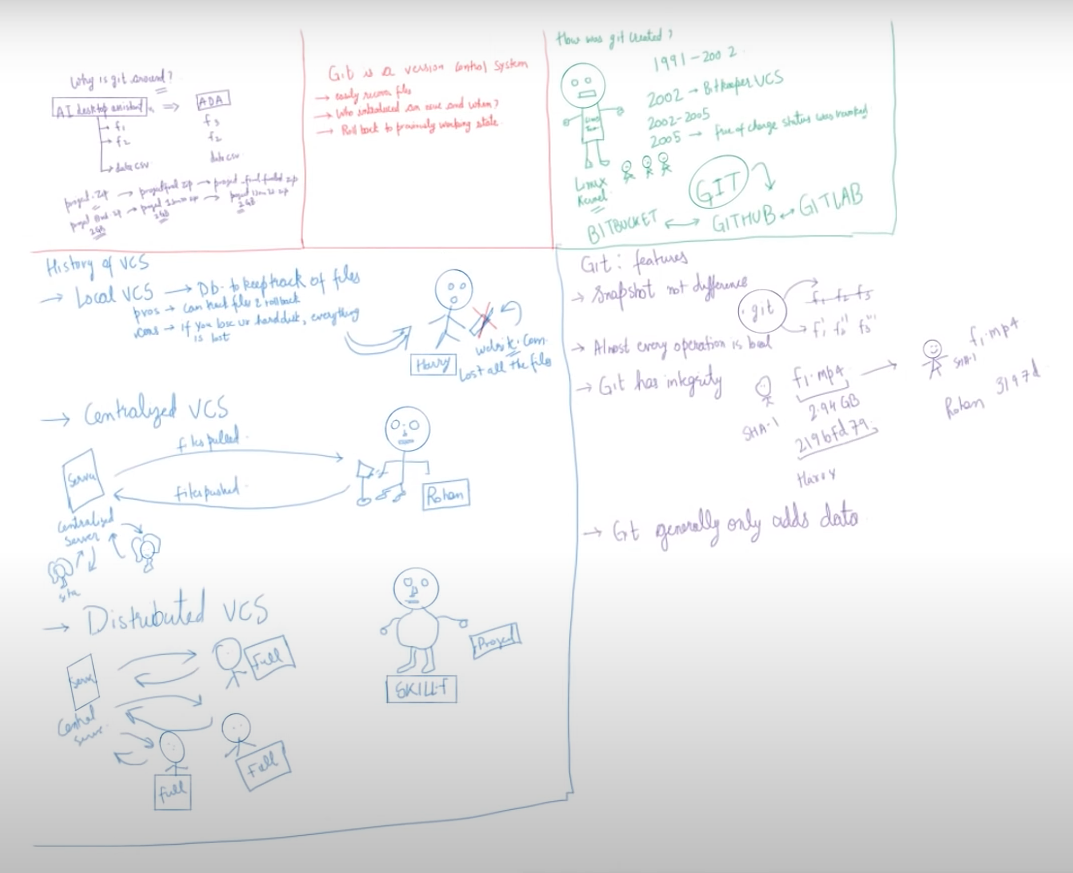 Why is git around?
AI desktop assistant
⇒ ADA
→ f1
→ f2
→ data csv
f3
f2
data csv
project.zip → project final zip → project final final zip
2GB
2GB
2GB
Git is a version control system
→ easily recover files
→ Who introduced an issue and when?
→ Roll back to previously working state
How was git created?
1991-2002
2002 → Bitkeeper VCS
2002-2005
2005 → free of charge status was revoked
Linux
Kernel
GIT
BITBUCKET ↔ GITHUB ↔ GITLAB
History of VCS
→ Local VCS → Db. to keep track of files
pros → can track files & rollback
cons → if you lose ur hard disk, everything
is lost
Harry
website.com
Lost all the files
→ Centralized VCS
files pulled
files pushed
Server
Centralised
Server
Rohan
→ Distributed VCS
Full
Server
Central
Server
Full
Full
Project
SKILLF
Git: features
→ Snapshot not difference
git
f1 f2 f3
f1' f2'' f3'''
→ Almost every operation is local
→ Git has integrity
f1.mp4
SHA-1
2.94 GB
219bfd79
Harry
f1.mp4
SHA-1
Rohan 3197d
→ Git generally only adds data